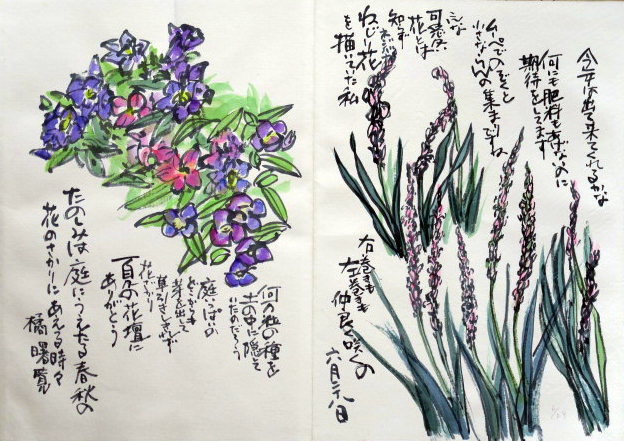 今年は出て来てくれるかな
何にも肥料もあげないのに
期待をしてます
ルーペでのぞくと
小さならんの集まりね
こんな
可愛い
花とは
知らず
ねじり花
を描いてた私
右巻きも
左巻きも
仲良く咲くの
六月二十八日
何万粒の種を
土の中に隠して
いたのだろう
庭いっぱい
どこからも
芽を出して
草ひきもせず
花ざかり
夏の花壇に
ありがとう
たのしみは庭にうえたる春秋の
花のさかりにあえる時々
橘曙覧